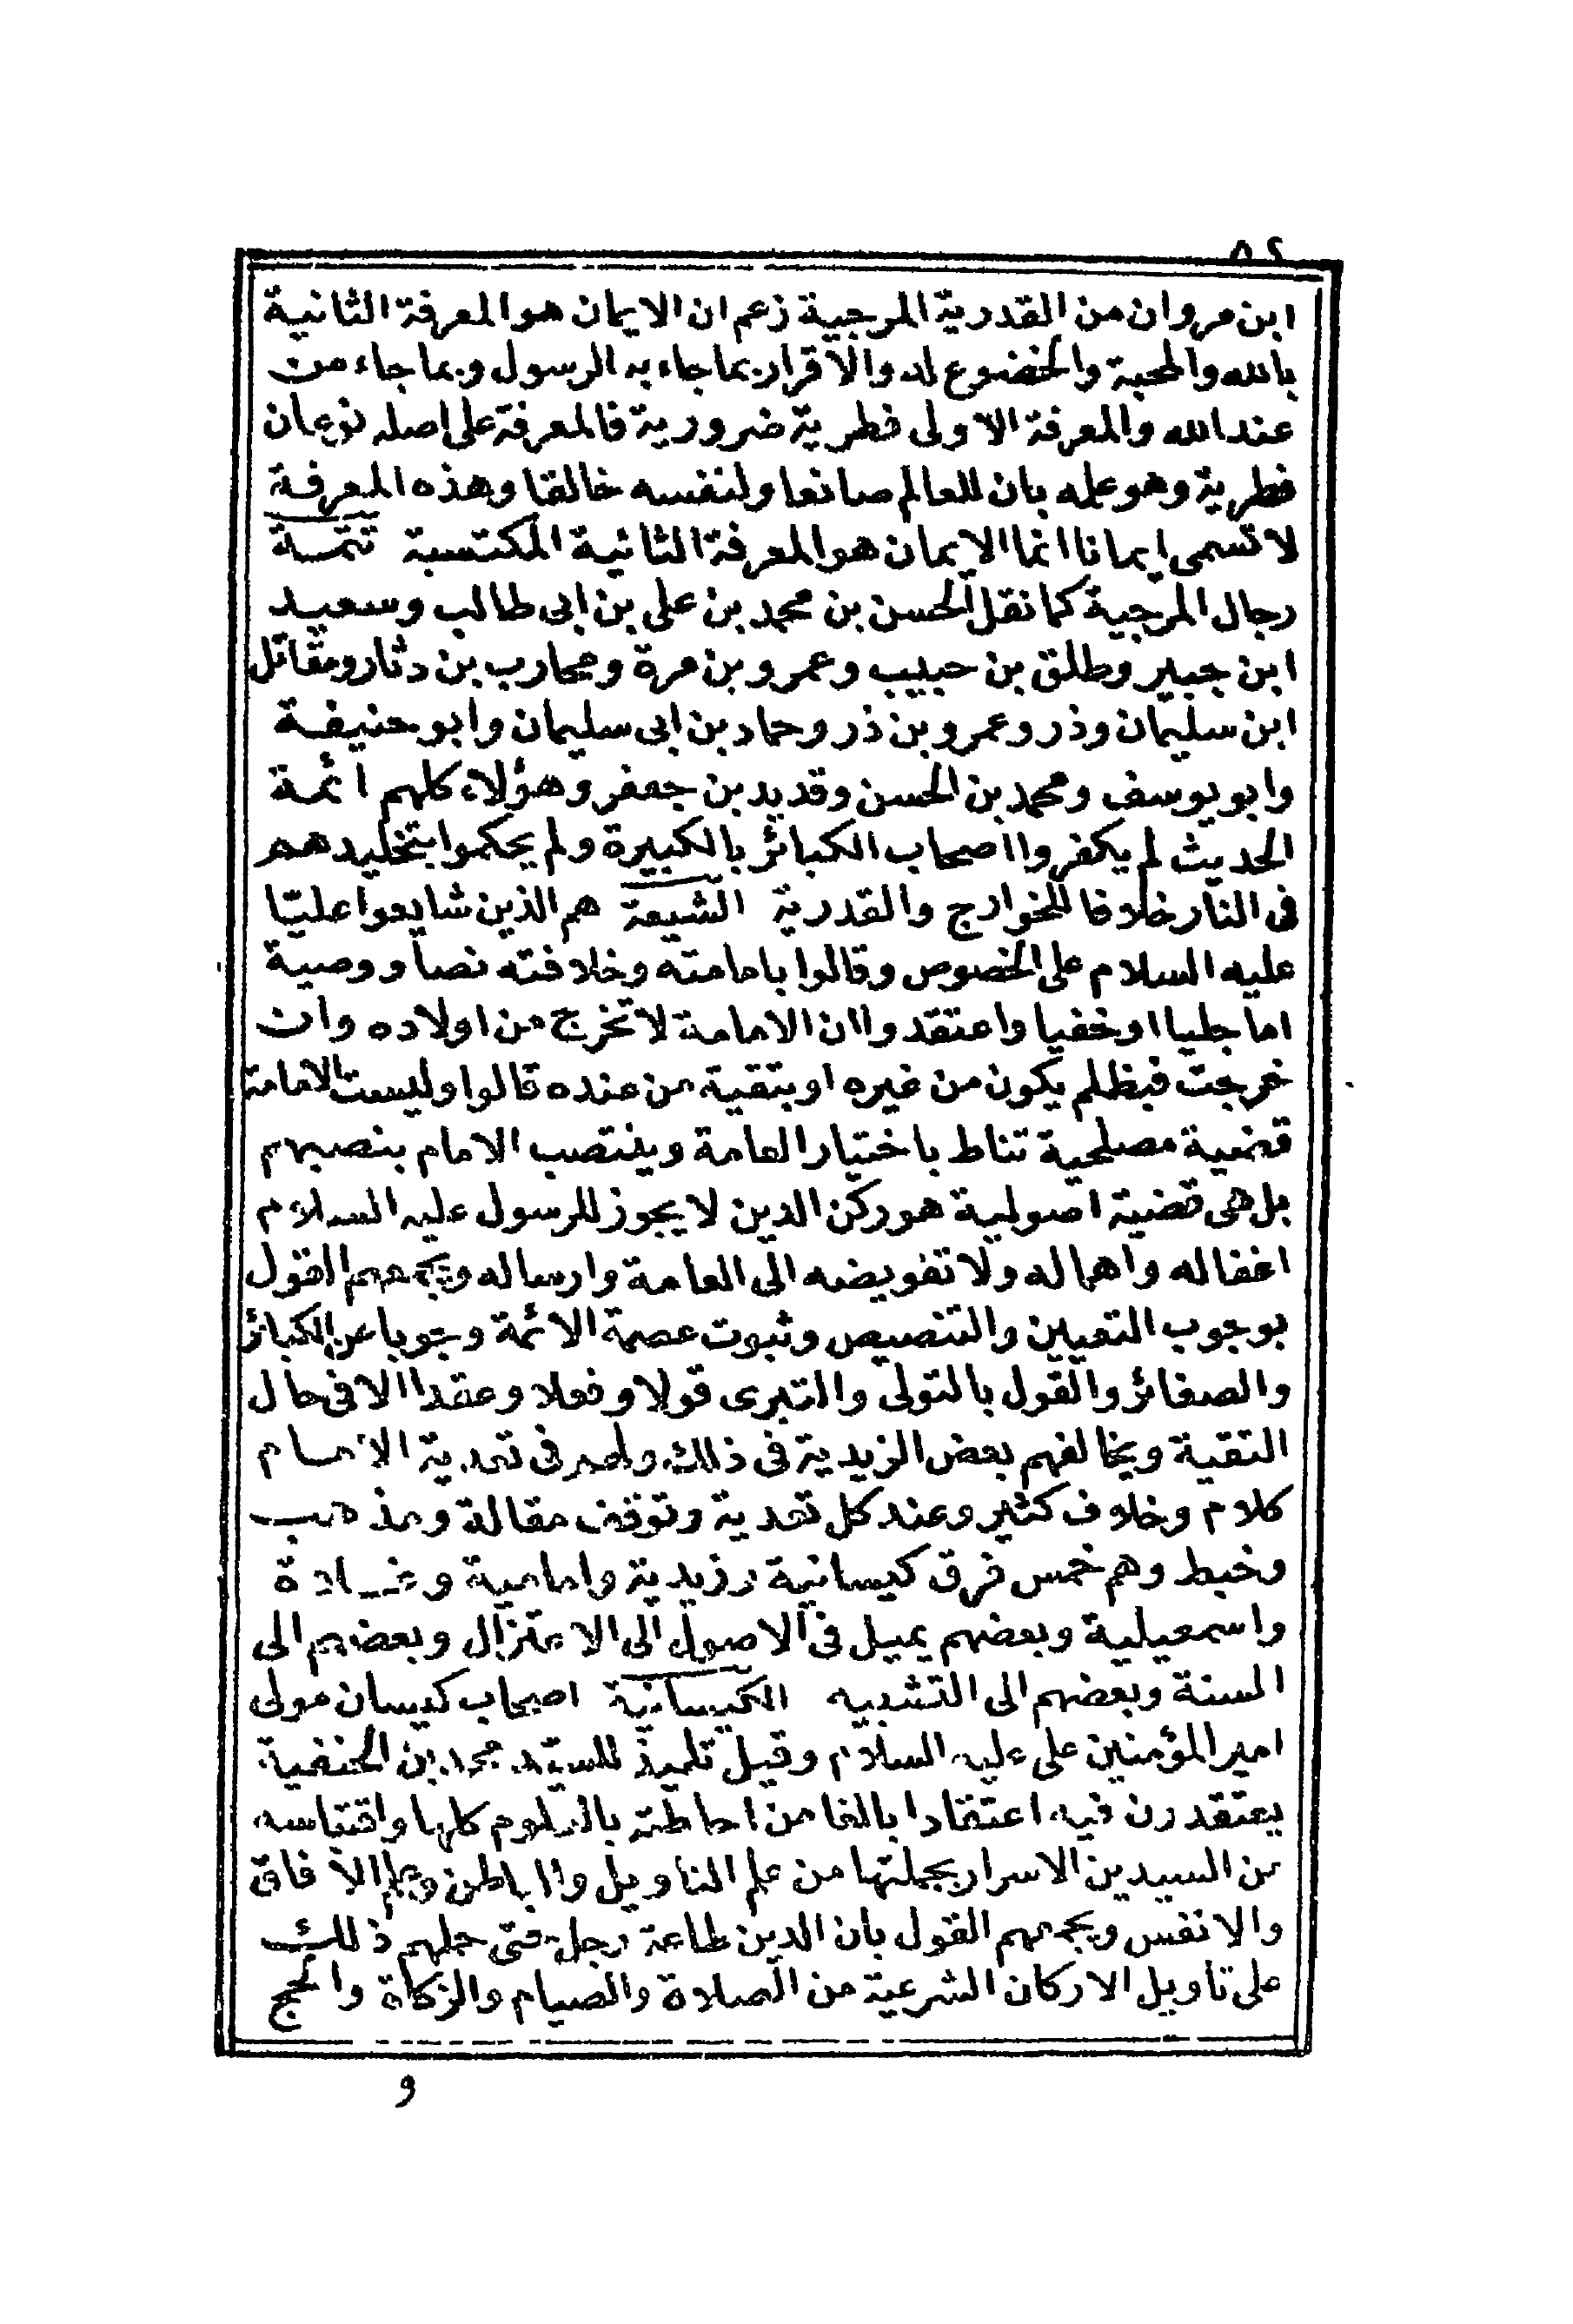 ابن مروان من القدرية المرجية زعم ان الايمان هو المعرفة الثانية
بالله والمحبة والخضوع له والاقرار بما جاء به الرسول وبما جاء من
عند الله والمعرفة الاولى فطرية ضرورية فالمعرفة على اصله نوعان
فطرية وهو علمه بان للعالم صانعا ولنفسه خالقا وهذه المعرفة
لا تسمى ايمانا انما الايمان هو المعرفة الثانية المكتسبة تتمة
رجال المرجية كما نقل الحسن بن محمد بن على بن ابى طالب وسعيد
ابن جبير وطلق بن حبيب وعمرو بن مرة ومحارب بن دثار ومقاتل
ابن سليمان وذر وعمرو بن ذر وحماد بن ابى سليمان وابو حنيفة
وابو يوسف ومحمد بن الحسن وقديد بن جعفر وهؤلاء كلهم ائمة
الحديث لم يكفروا اصحاب الكبائر بالكبيرة ولم يحكموا بتخليدهم
فى النار خلافا للخوارج والقدرية الشيعة هم الذين شايعوا عليّا
عليه السلام على الخصوص وقالوا بامامته وخلافته نصا ووصية
اما جليا او خفيا واعتقدوا ان الامامة لا تخرج من اولاده وان
خرجت فبظلم يكون من غيره او بتقية من عنده قالوا وليست الامامة
قضية مصلحية تناط باختيار العامة وينتصب الامام بنصبهم
بل هى قضية اصولية هو ركن الدين لا يجوز للرسول عليه السلام
اغفاله واهماله ولا تفويضه الى العامة وارساله ويجمعهم القول
بوجوب التعيين والتنصيص وثبوت عصمة الائمة وجوبا عن الكبائر
والصغائر والقول بالتولى والتبرى قولا وفعلا وعقدا الا فى حال
التقية ويخالفهم بعض الزيدية فى ذلك ولهم فى تعدية الامام
كلام وخلاف كثير وعند كل تعدية وتوقف مقالة ومذهب
وخبط وهم خمس فرق كيسانية وزيدية وامامية وغلاة
واسمعيلية وبعضهم يميل فى الاصول الى الاعتزال وبعضهم الى
السنة وبعضهم الى التشبيه الكيسانية اصحاب كيسان مولى
امير المؤمنين على عليه السلام وقيل تلميذ للسيد محمد بن الحنفية
يعتقدون فيه اعتقادا بالغا من احاطته بالعلوم كلها واقتباسه
من السيدين الاسرار بجملتها من علم التاويل والباطن وعلم الافاق
والانفس ويجمعهم القول بان الدين طاعة رجل حتى حملهم ذلك
على تاويل الاركان الشرعية من الصلاة والصيام والزكاة والحج
و